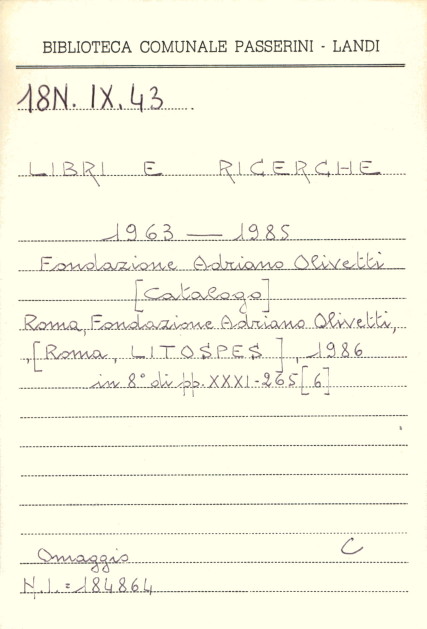 BIBLIOTECA COMUNALE PASSERINI - LANDI
18N. IX. 43
LIBRI E RICERCHE
1963 — 1985
Fondazione Adriano Olivetti
[Catalogo]
Roma, Fondazione Adriano Olivetti,
,[Roma, LITOSPES], 1986
in 8° di pp. XXXI-265[6]
Omaggio C
N.I. = 184864